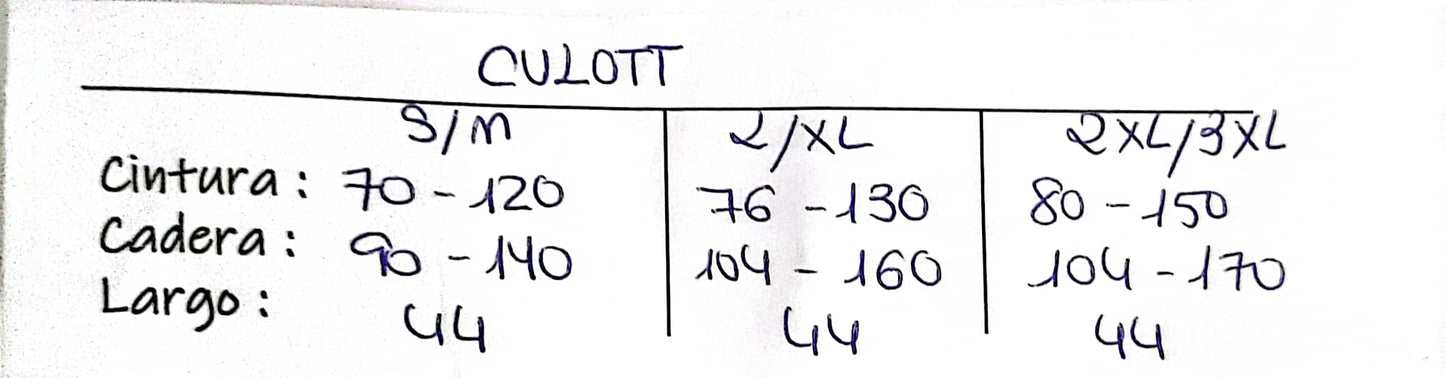 CULOTT
S/M L/XL 2XL/3XL
Cintura: 70-120 76-130 80-150
Cadera: 90-140 104-160 104-170
Largo: 44 44 44